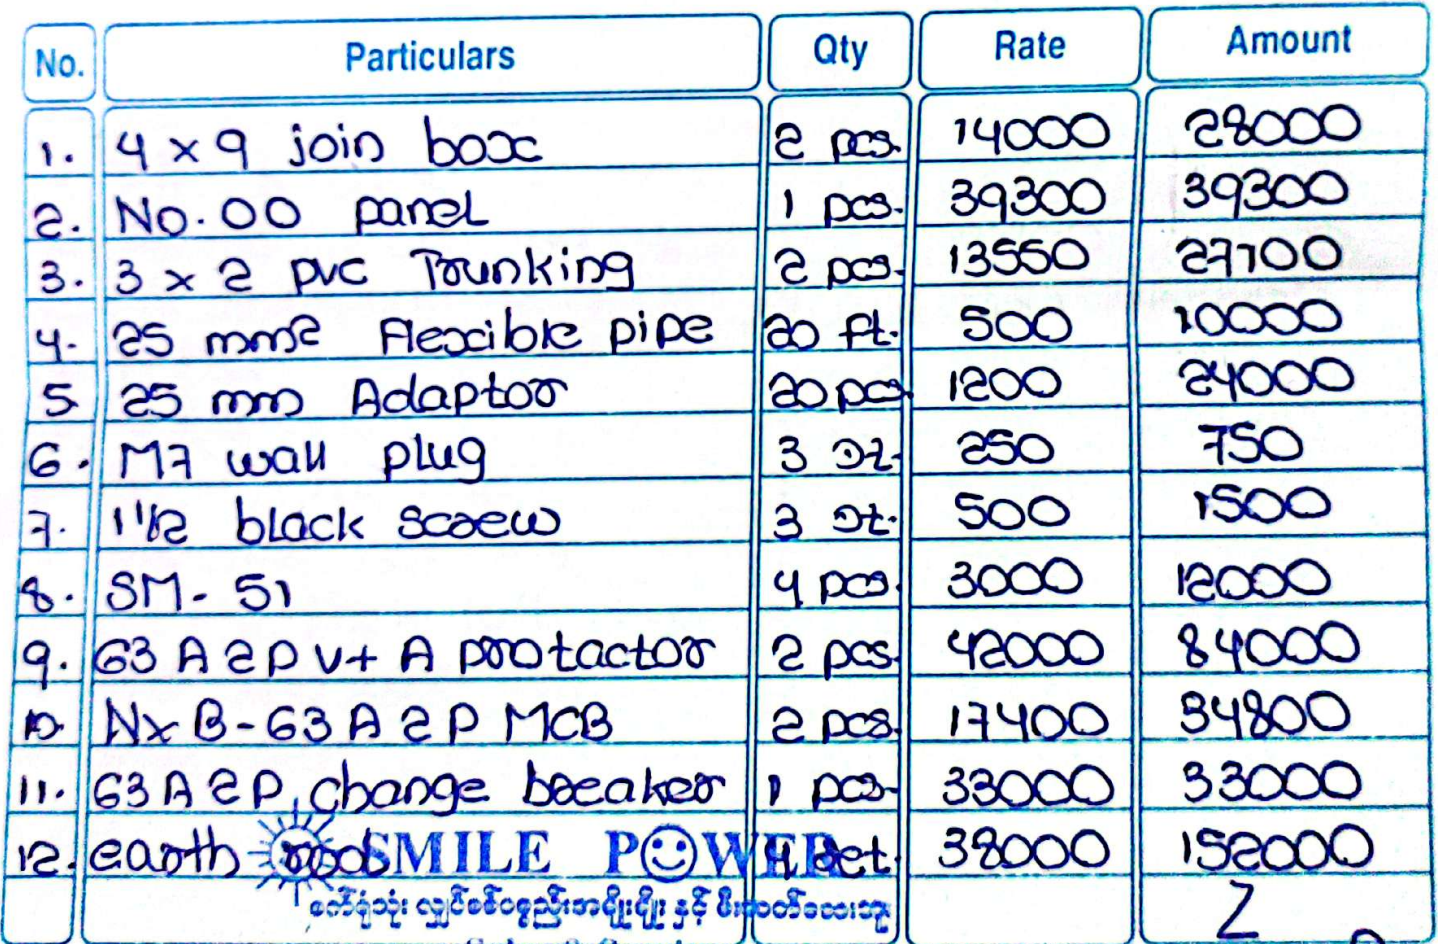 No. Particulars Qty Rate Amount
1. 4 x 9 join box 2 pcs. 14000 28000
2. No. 00 panel 1 pcs. 39300 39300
3. 3 x 2 pvc Trunking 2 pcs. 13550 27100
4. 25 mm2 Flexible pipe 20 ft. 500 10000
5. 25 mm Adaptor 20 pcs 1200 24000
6. M7 wall plug 3 250 750
7. 1"1/2 black screw 3 500 1500
8. SM - 51 4 pcs. 3000 12000
9. 63 A 2P V+ A protactor 2 pcs. 42000 84000
10. NxB-63 A 2P MCB 2 pcs. 17400 34800
11. 63 A 2P change breaker 1 pcs. 33000 33000
12. earth rod 4 set 38000 152000
SMILE POWER
စက်ရုံသုံး လျှပ်စစ်ပစ္စည်းအမျိုးမျိုး နှင့် မီးသတ်ဆေးဘူး